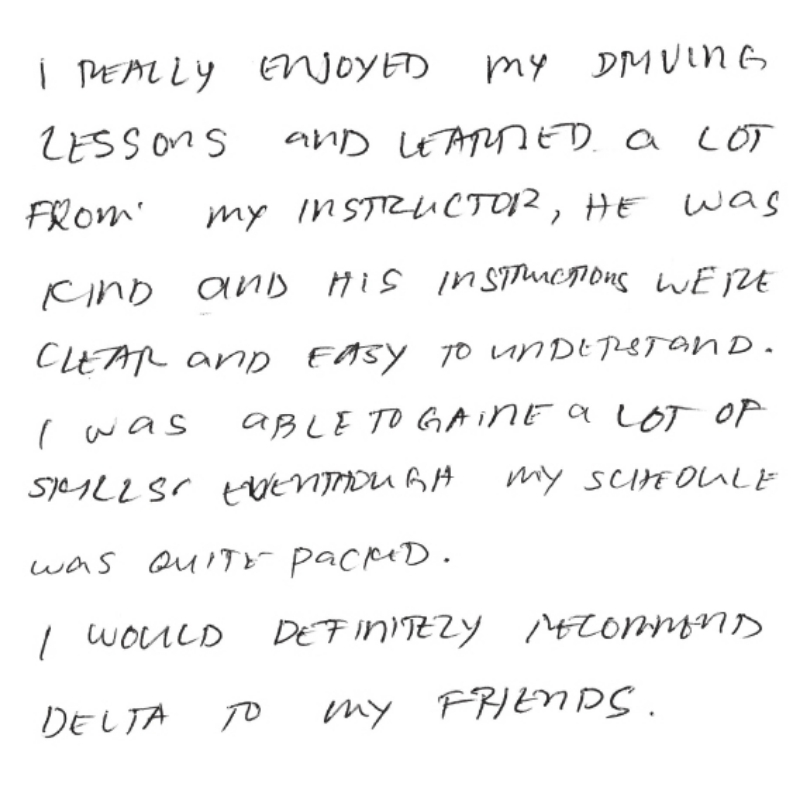 I REALLY ENJOYED MY DRIVING
LESSONS AND LEARNED A LOT
FROM MY INSTRUCTOR, HE WAS
KIND AND HIS INSTRUCTIONS WERE
CLEAR AND EASY TO UNDERSTAND.
I WAS ABLE TO GAINE A LOT OF
SKILLS, EVENTHOUGH MY SCHEDULE
WAS QUITE PACKED.
I WOULD DEFINITELY RECOMMEND
DELTA TO MY FRIENDS.